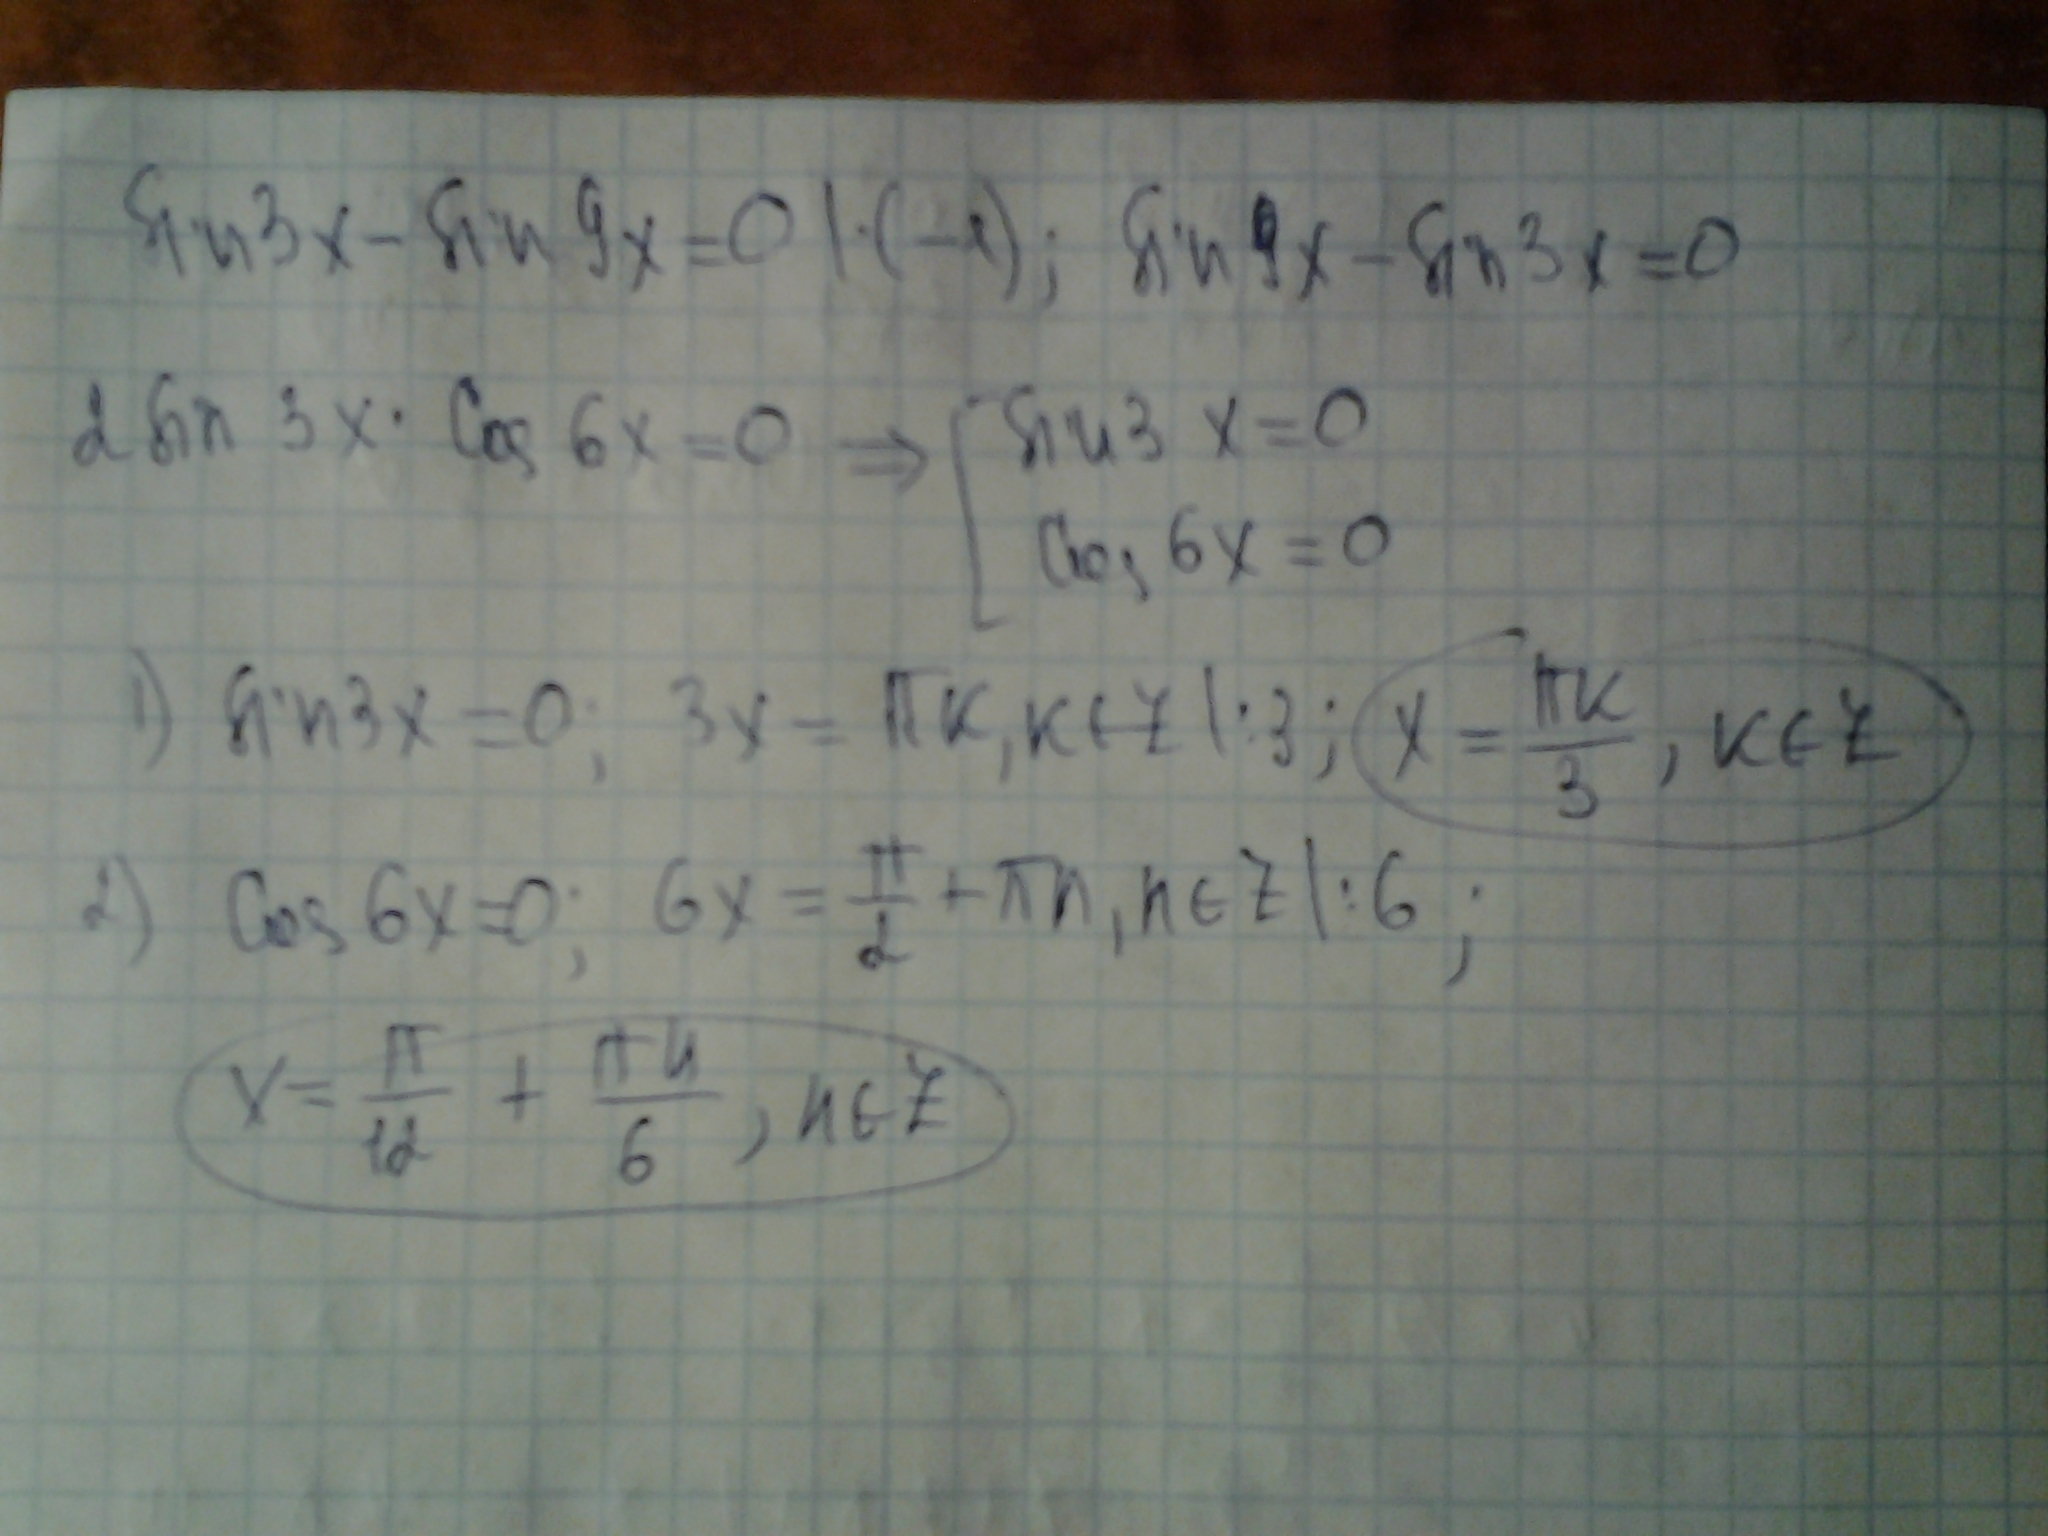 sin3x-sin9x=0 |·(-1); sin9x-sin3x=0
2 sin 3x · cos 6x=0 ⇒ [ sin3x=0
cos 6x=0
1) sin3x=0; 3x=πk, k∈Z |:3; x=πk/3, k∈Z
2) cos 6x=0; 6x=π/2+πn, n∈Z |:6;
x=π/12+πn/6, n∈Z